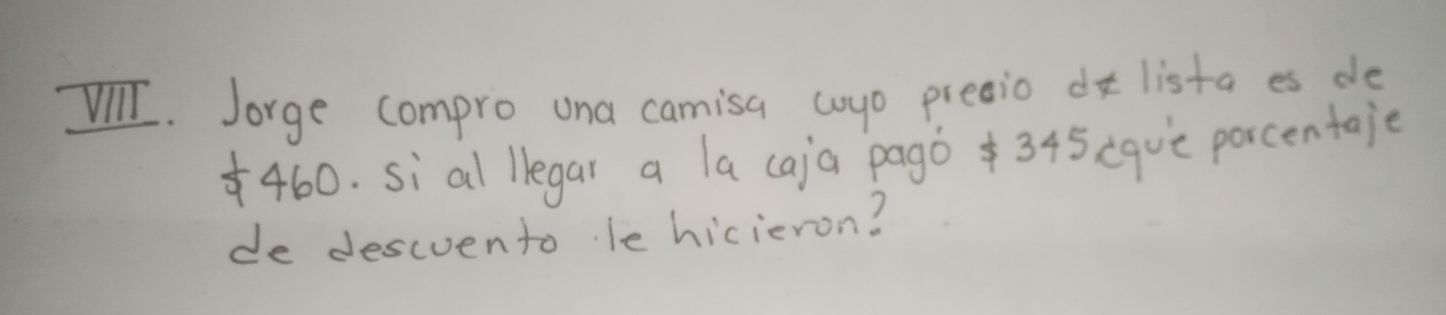 VIII. Jorge compro una camisa cuyo precio de lista es de
$460. si al llegar a la caja pagó $345 ¿qué porcentaje
de descuento le hicieron?